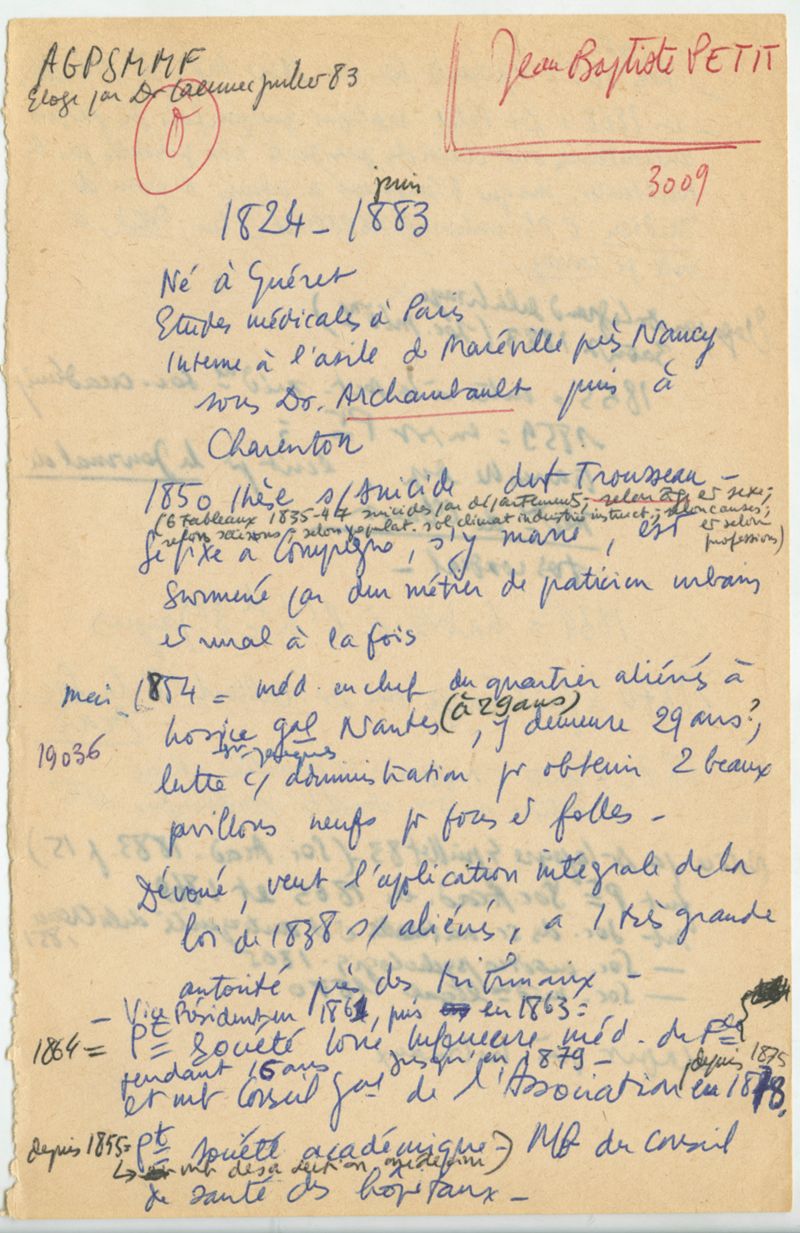 AGPSMMF
Eloge par Dr Laennec juillet 83
Jean Baptiste PETIT
3009
juin
1824 - 1883
Né à Guéret
Etudes médicales à Paris
Interne à l'asile de Maréville près Nancy
sous Dr. Archambault puis à
Charenton
1850 thèse s/ suicide dont Trousseau -
(6 tableaux 1835-47 suicides par départements; selon âge et sexe;
selon saisons; selon populat. sol climat industrie instruct.; selon causes;
et selon professions)
Se fixe à Compiègne, s'y marie, est
surmené par dur métier de praticien urbain
et rural à la fois
mai 1854 = méd. en chef du quartier aliénés à
hospice gal Nantes (à 29 ans), y demeure 29 ans?,
St Jacques
19036
lutte c/ administration pr obtenir 2 beaux
pavillons neufs pr fous et folles -
Dévoué, veut l'application intégrale de la
loi de 1838 s/ aliénés, a 1 très grande
autorité près des tribunaux -
- Vice Président en 1861, puis en 1863 =
1864 = Pt Société Loire Inférieure méd. de Pce
pendant 15 ans jusqu'en 1879 -
depuis 1875
et mb Conseil gal de l'Association en 1878.
depuis 1855 = Pt société académique) Mb du Conseil
↳ mb de sa section médecine)
de santé des hôpitaux -